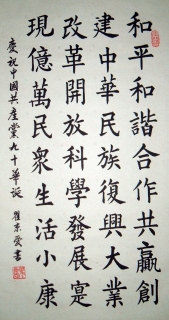 和平和諧合作共贏創
建中華民族復興大業
改革開放科學發展寔
現億萬民眾生活小康
慶祝中國共產黨九十華誕
書